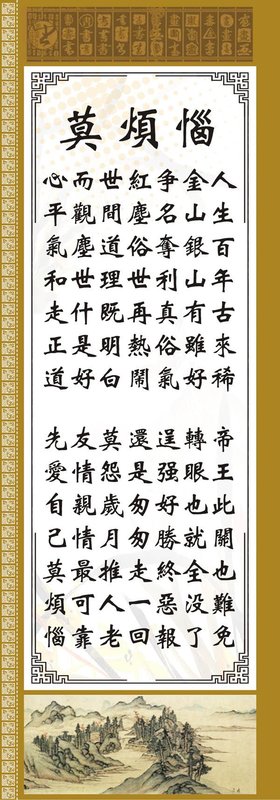 莫煩惱
人生百年古來稀
帝王此關也難免
金山銀山有雖好
轉眼也就全没了
爭名奪利真俗氣
逞强好勝終惡報
紅塵俗世再熱鬧
還是匆匆走一回
世間道理既明白
莫怨歲月推人老
而觀塵世什是好
友情親情最可靠
心平氣和走正道
先愛自己莫煩惱